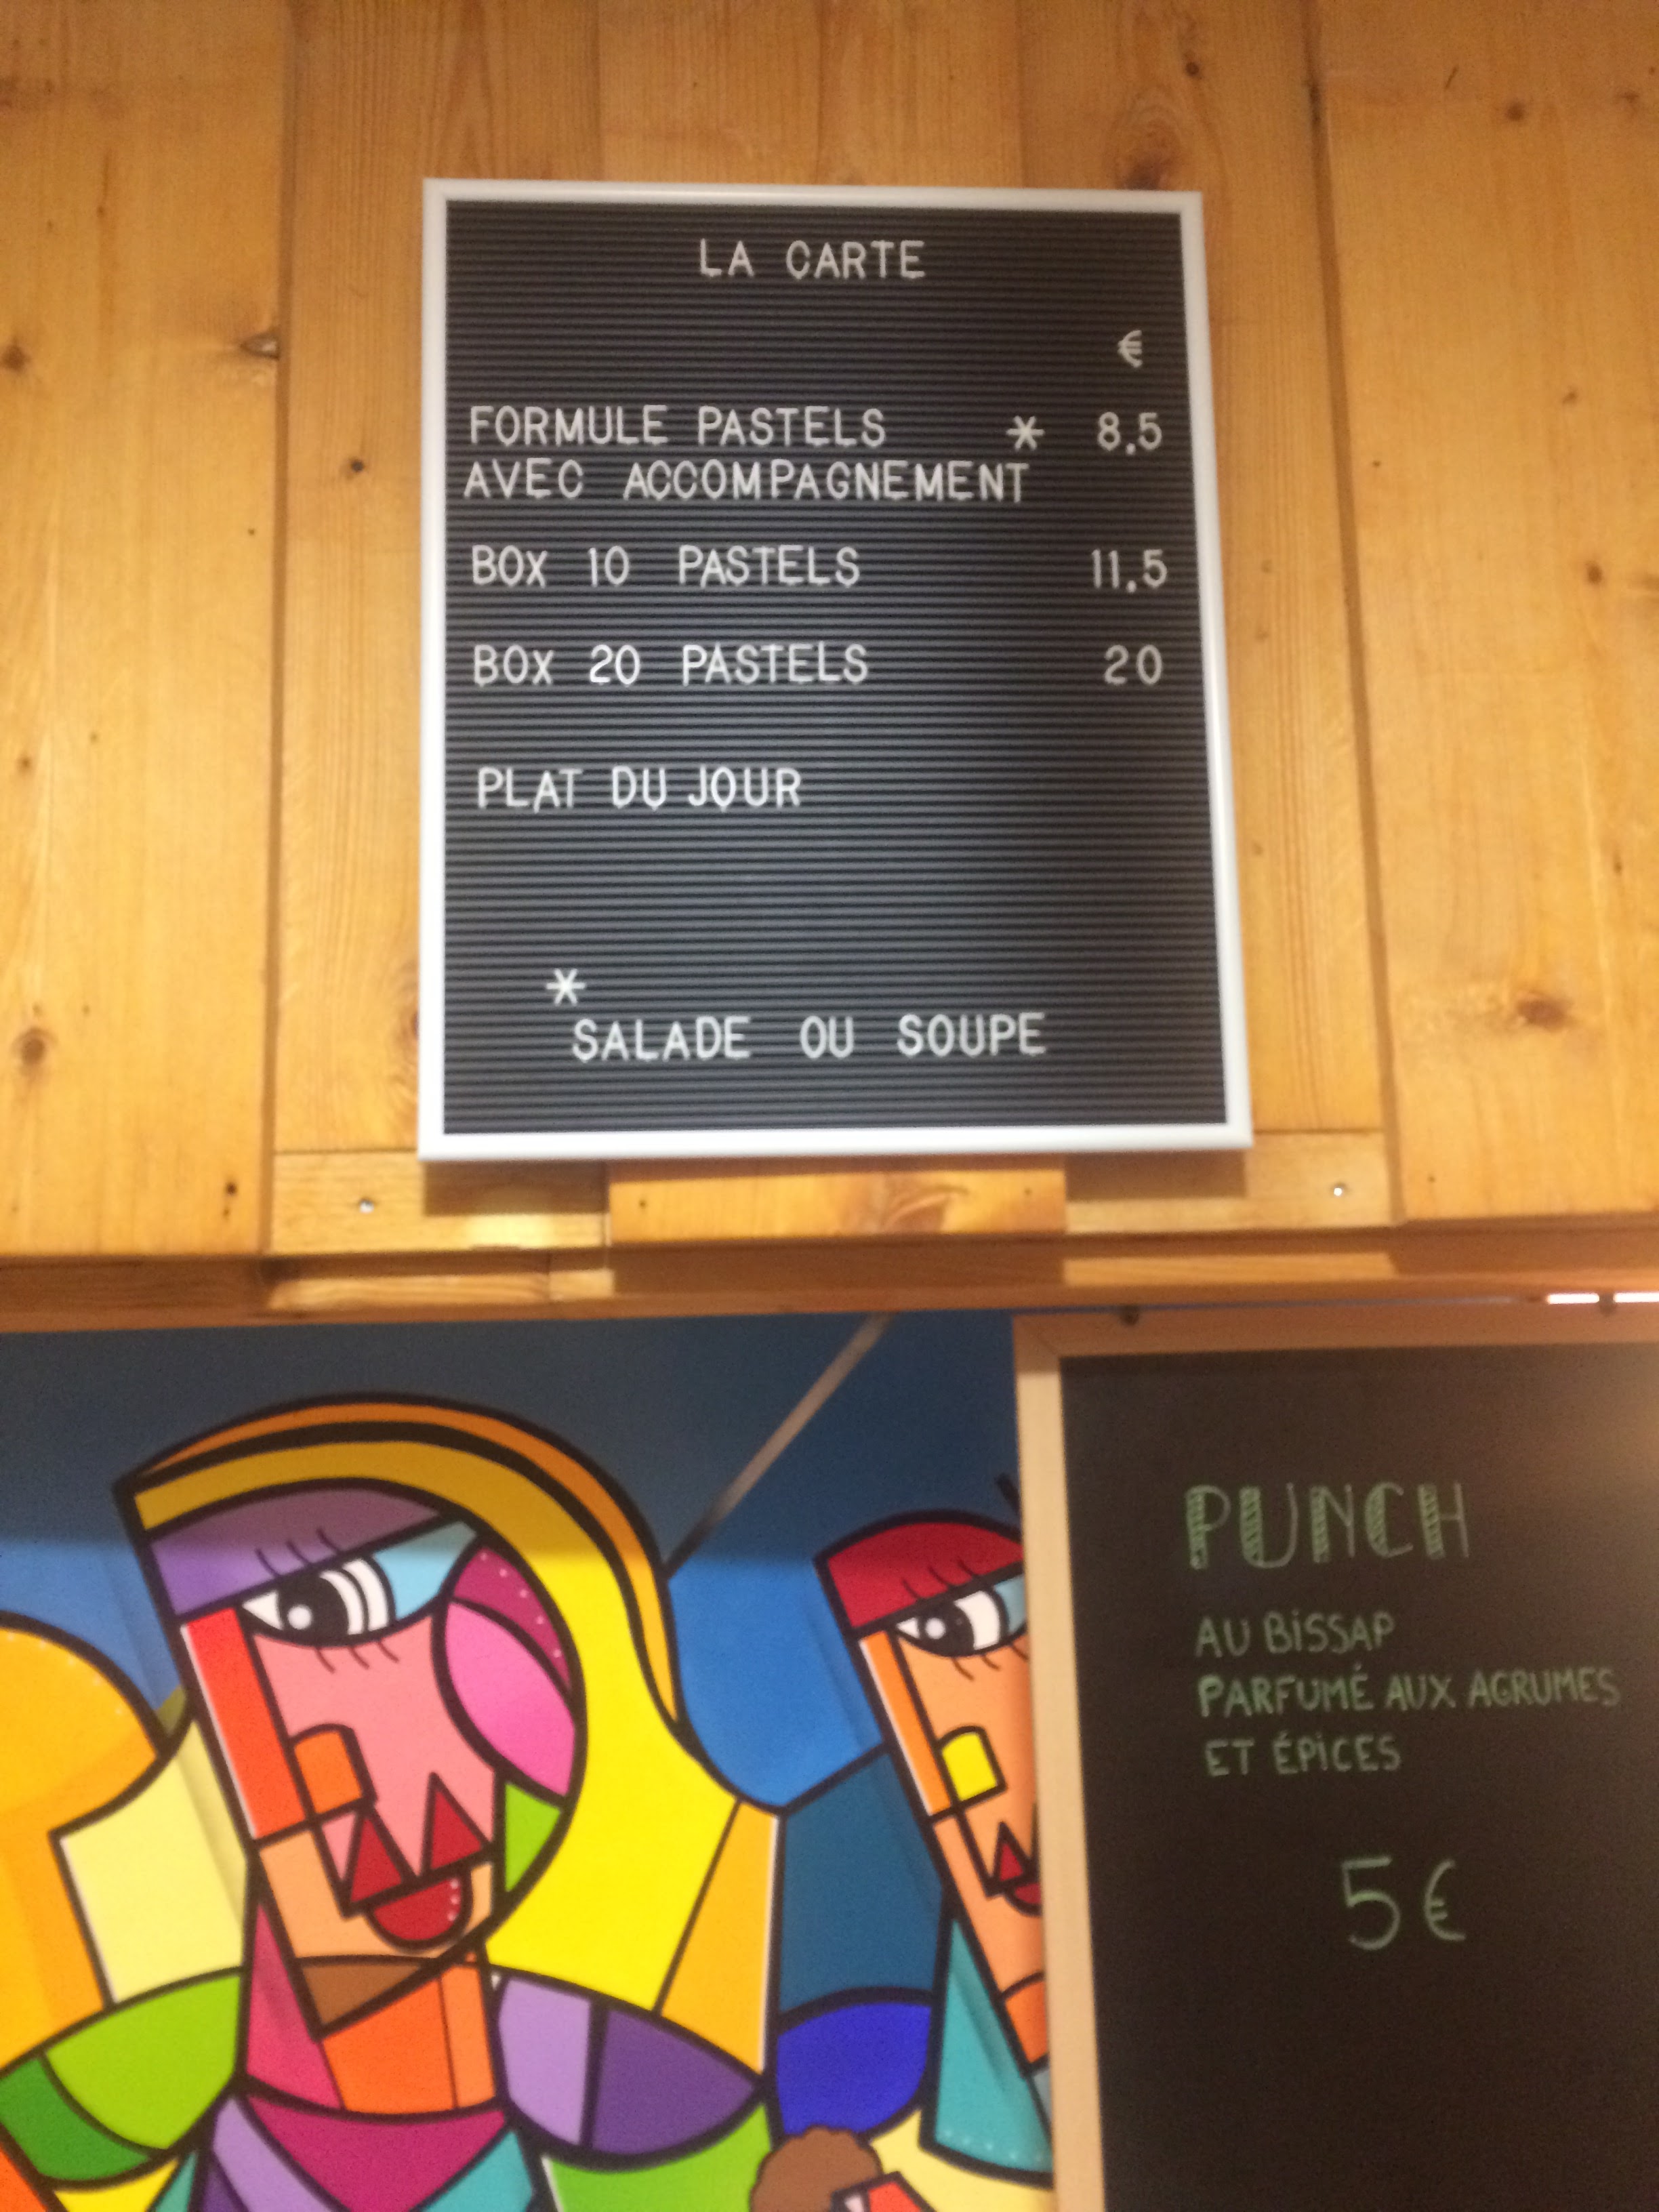 LA CARTE
€
FORMULE PASTELS * 8.5
AVEC ACCOMPAGNEMENT
BOX 10 PASTELS 11.5
BOX 20 PASTELS 20
PLAT DU JOUR
*
SALADE OU SOUPE
PUNCH
AU BISSAP
PARFUMÉ AUX AGRUMES
ET ÉPICES
5€